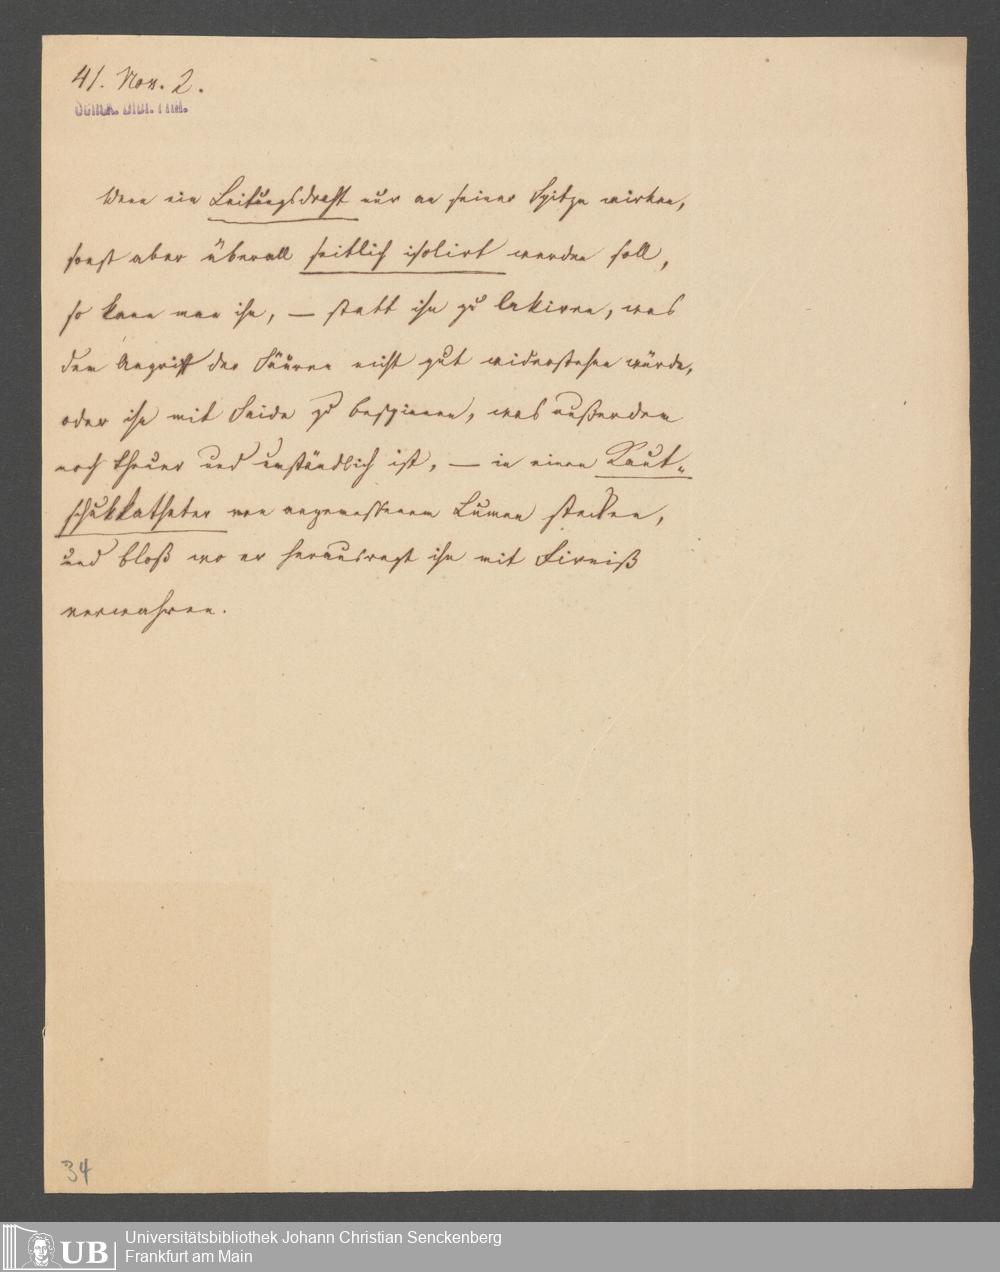 41. Nov. 2.
Wenn ein Leitungsdraht nur an seiner Spitze wirken,
sonst aber überall seitlich isolirt werden soll,
so kann man ihn, — statt ihn zu lakiren, was
dem Angriff der Säuren nicht gut widerstehen würde,
oder ihn mit Seide zu bespinnen, was außerdem
noch theuer und umständlich ist, — in einen Kaut-
schukkatheter von angemessenem Lumen stecken,
und bloß wo er herausragt ihn mit Firniß
verwahren.
34
UB
Universitätsbibliothek Johann Christian Senckenberg
Frankfurt am Main